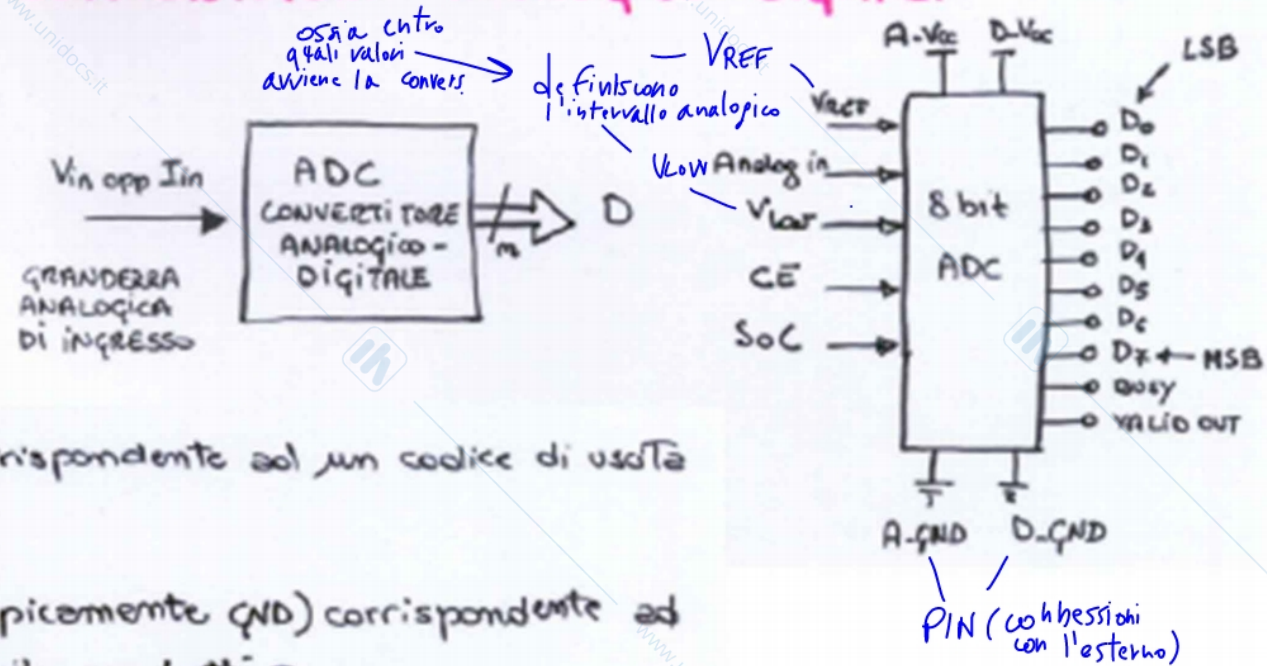 www.unidocs.it
ossia entro
quali valori
avviene la convers.
definiscono
l'intervallo analogico
VREF
VLOW
Vin opp Iin
GRANDEZZA
ANALOGICA
DI INGRESSO
ADC
CONVERTITORE
ANALOGICO-
DIGITALE
n
D
A-Vcc D-Vcc
LSB
VREF
Analog in
VLOW
CE
SOC
8 bit
ADC
D0
D1
D2
D3
D4
D5
D6
D7 MSB
BUSY
VALID OUT
A-GND D-GND
PIN (connessioni
con l'esterno)
rispondente ad un codice di uscita
picamente GND) corrispondente ad
www.unidocs.it